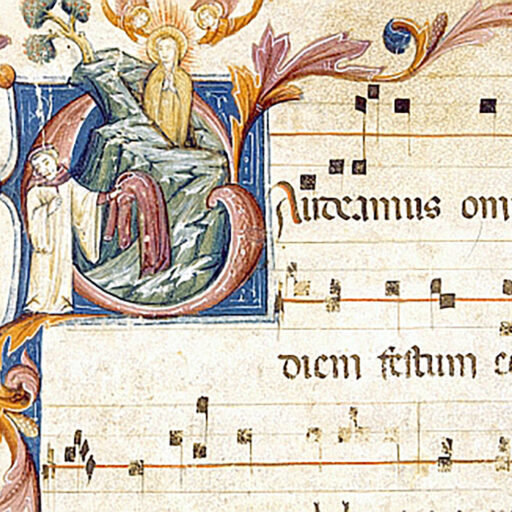 GAudeamus om
diem festum ce